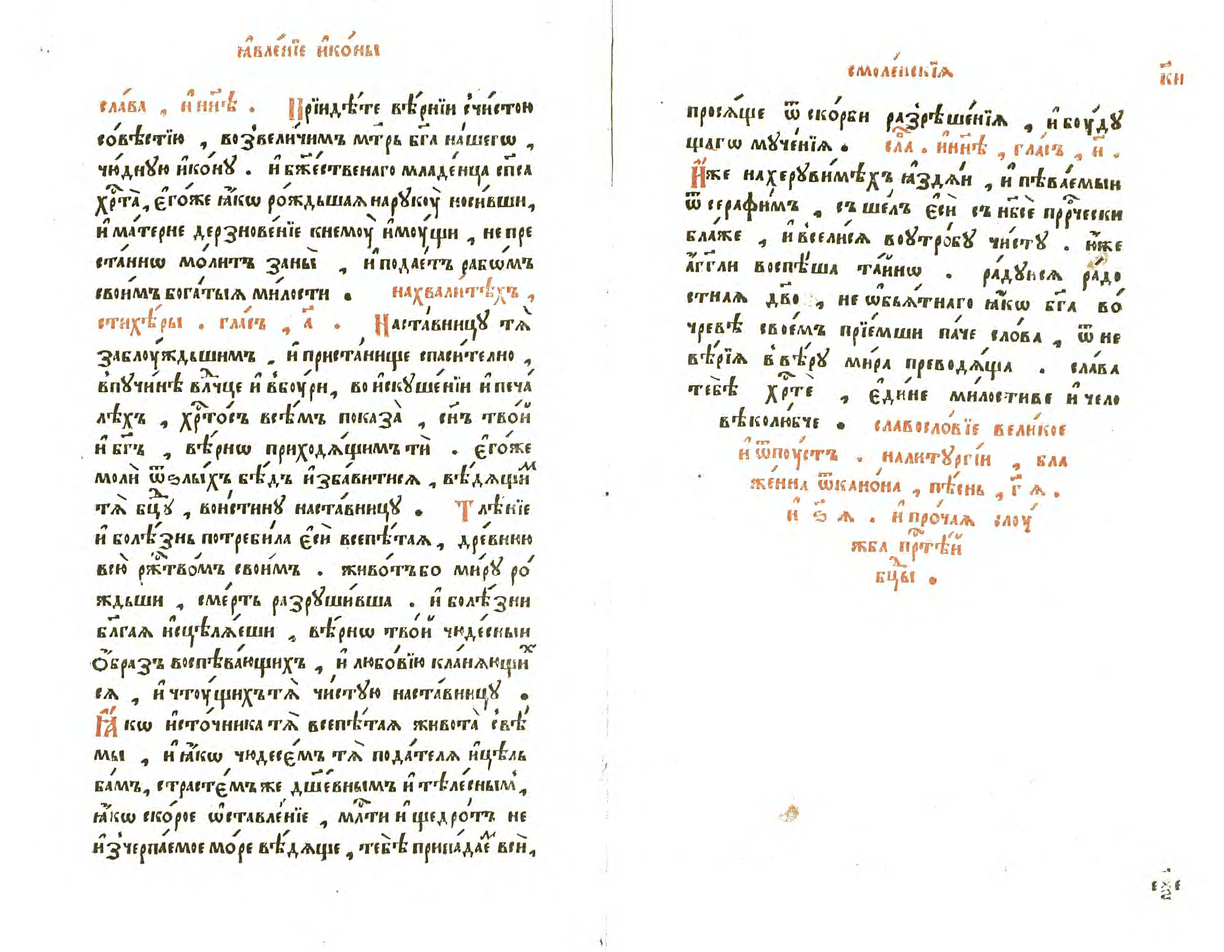 ꙗ҆вле́нїе и҆ко́ны
сла́ва , и҆ нн҃ѣ . Прїидѣ́те вѣ́рнїи с̾чи́стою
со́вѣстїю , возвели́чимъ мт҃рь бг҃а на́шегѡ ,
чю́дную и҆ко́нꙋ . и҆ бж҃е́ственаго младе́нца сп҃са
хрⷭ҇та̀, є҆го́же ꙗ҆́кѡ ро́ждьшая нарꙋкоу̀ носи́вши,
и҆ ма́терне дерзнове́нїе кнемоу̀ и҆мо́ущи , не пре
ста́ннѡ мо́литъ за́ны̀ , и҆ подае́тъ рабѡ́мъ
свои́мъ бога́тыѧ ми́лости . нахвали́тѣхъ ,
стихѣ́ры . гла́съ , а҃ . Наста́вницꙋ тѧ̀
заблоу́ждьшимъ , и҆ приста́нище спаси́телно ,
впꙋчи́нѣ влⷣчце и҆ в̾боу́ри, во и҆скꙋше́нїи и҆ печа́
лѣхъ , хрⷭ҇то́съ всѣ́мъ показа̀ , сн҃ъ тво́й
и҆ бг҃ъ , вѣ́рнѡ приходѧ́щимъ тѝ . є҆го́же
моли̇ ѿѕлы́хъ бѣ́дъ и҆зба́витисѧ , вѣ́дѧщиⷨ
тѧ̀ бцⷣꙋ , вои́стинꙋ наста́вницꙋ . Тлѣ́нїе
и҆ болѣ́знь потреби́ла є҆сѝ всепѣ́таѧ , дре́внюю
всю̀ ржⷭ҇тво́мъ свои́мъ . живо́тъ бо ми́рꙋ ро́
ждьши , сме́рть разрꙋши́вша . и҆ болѣ́зни
бл҃га́ѧ и҆сцѣлѧ́еши , вѣ́рнѡ тво́й чюде́сныи
О҆́бразъ воспѣва́ющихъ , и҆ любо́вїю кланѧ́ющиⷯ
сѧ , и҆ чтоу́щихъ тѧ̀ чи́стꙋю наста́вницꙋ .
Ꙗ҆́кѡ и҆сто́чника тѧ̀ всепѣ́таѧ живота̀ свѣ́
мы , и҆ ꙗ҆́кѡ чюдесє́мъ тѧ̀ пода́телѧ и҆цѣль
ба́мъ, страстє́мъ же дш҃е́внымъ и҆ тѣле́сным̾,
ꙗ҆́кѡ ско́рое ѡ҆ставле́нїе , млⷭ҇ти и҆ щедро́тъ не
и҆зчерпа́емое мо́ре вѣ́дѧще , тебѣ̀ припа́даеⷨ всѝ,
смоле́нскїѧ
к҃и
просѧ́ще ѿ ско́рби разрѣше́нїѧ , и҆ боу́дꙋ
щагѡ мꙋче́нїѧ . сла́ . и҆ нн҃ѣ , гла́съ , и҃ .
И҆́же на херꙋви́мѣхъ ꙗ҆здѧ́и , и҆ пѣва́емыи
ѿ серафи́мъ , съ ше́лъ є҆сѝ съ нб҃се прⷪ҇рчески
бла́же , и҆ всели́сѧ воу̀тро́бꙋ чи́стꙋ . ю҆́же
а҆́гг҃ли воспѣ́ша та́йнѡ . ра́дꙋисѧ ра́до
стнаѧ дв҃о , не ѡ҆бьѧ́тнаго ꙗ҆́кѡ бг҃а во́
чревѣ свое́мъ прїе́мши па́че сло́ва , ѿ не
вѣ́рїѧ в̾ вѣ́рꙋ ми́ра преводѧ́ща . сла́ва
тебѣ̀ хрⷭ҇тѐ , є҆ди́не ми́лостиве и҆ чело
вѣколю́бче . славосло́вїе вели́кое
и҆ ѿпоу́стъ . на литꙋргі́и , бла
же́нна ѿ кано́на , пѣ́снь , г҃ ѧ .
и҆ ѕ҃ ѧ . и҆ про́чаѧ слоу́
жба прⷭ҇тѣ́й
бцⷣы .